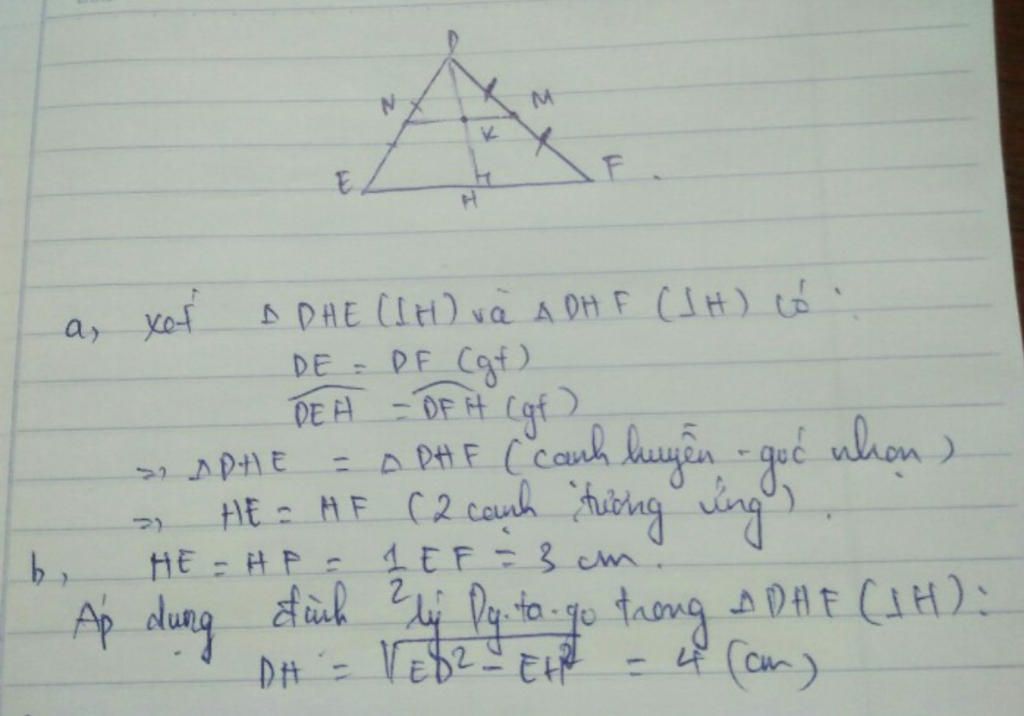 D
N M
K
E F .
H
a, xét Δ DHE (⊥H) và Δ DHF (⊥H) có :
DE = DF (gt)
\widehat{DEH} = \widehat{DFH} (gt)
=> Δ DHE = Δ DHF (cạnh huyền - góc nhọn)
=> HE = HF (2 cạnh tương ứng).
b, HE = HF = \frac{1}{2} EF = 3 cm.
Áp dụng định lý Py-ta-go trong Δ DHF (⊥H):
DH = \sqrt{ED^2 - EH^2} = 4 (cm)